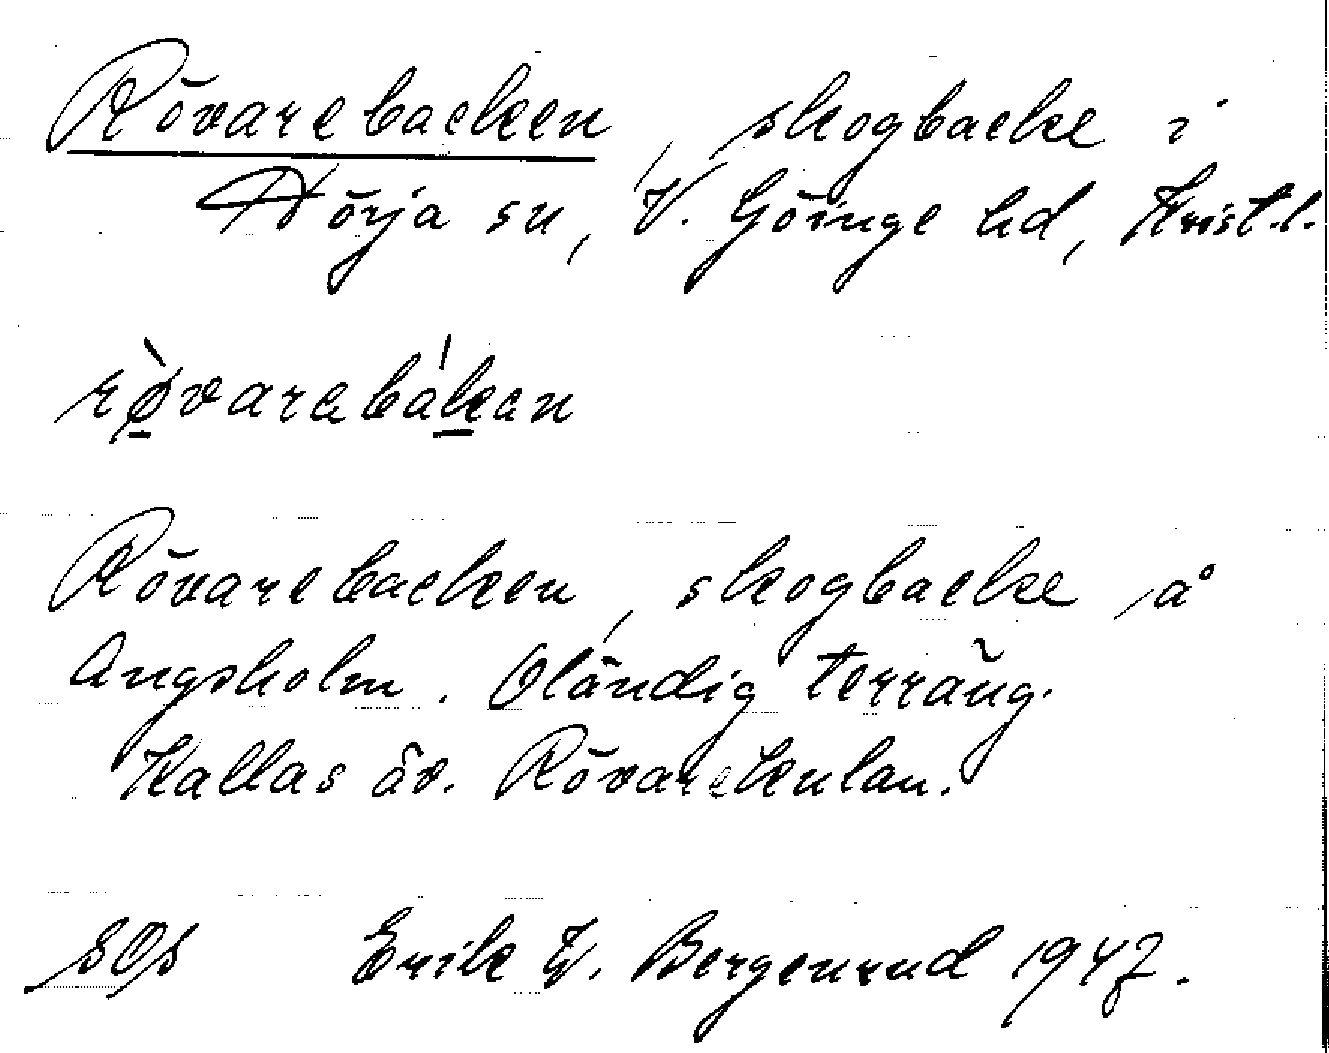 Rövarebacken, skogbacke i
Hörja sn, V. Göinge hd, Krist.l.
rø̀varebákan
Rövarebacken, skogbacke på
Ängsholm. Oländig terräng.
Kallas äv. Rövarekulan.
Erik W. Bergenrud 1947.